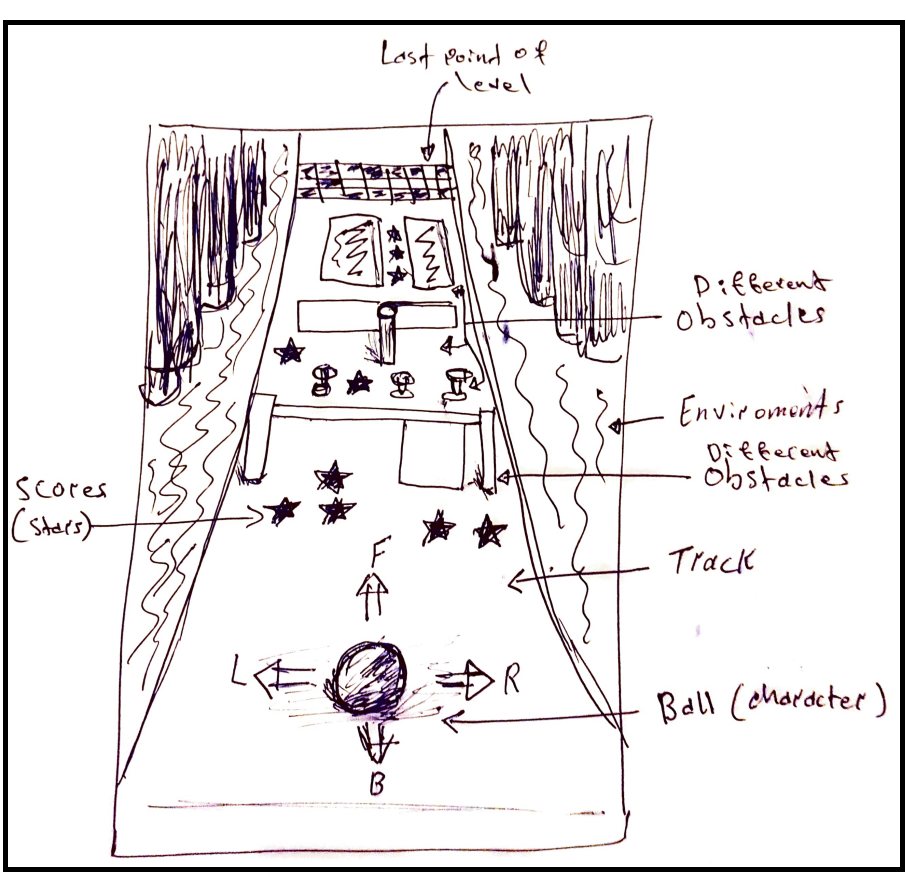 Last point of
level
Different
Obstacles
Enviroments
Different
Obstacles
Scores
(Stars)
F
Track
L
R
Ball (character)
B